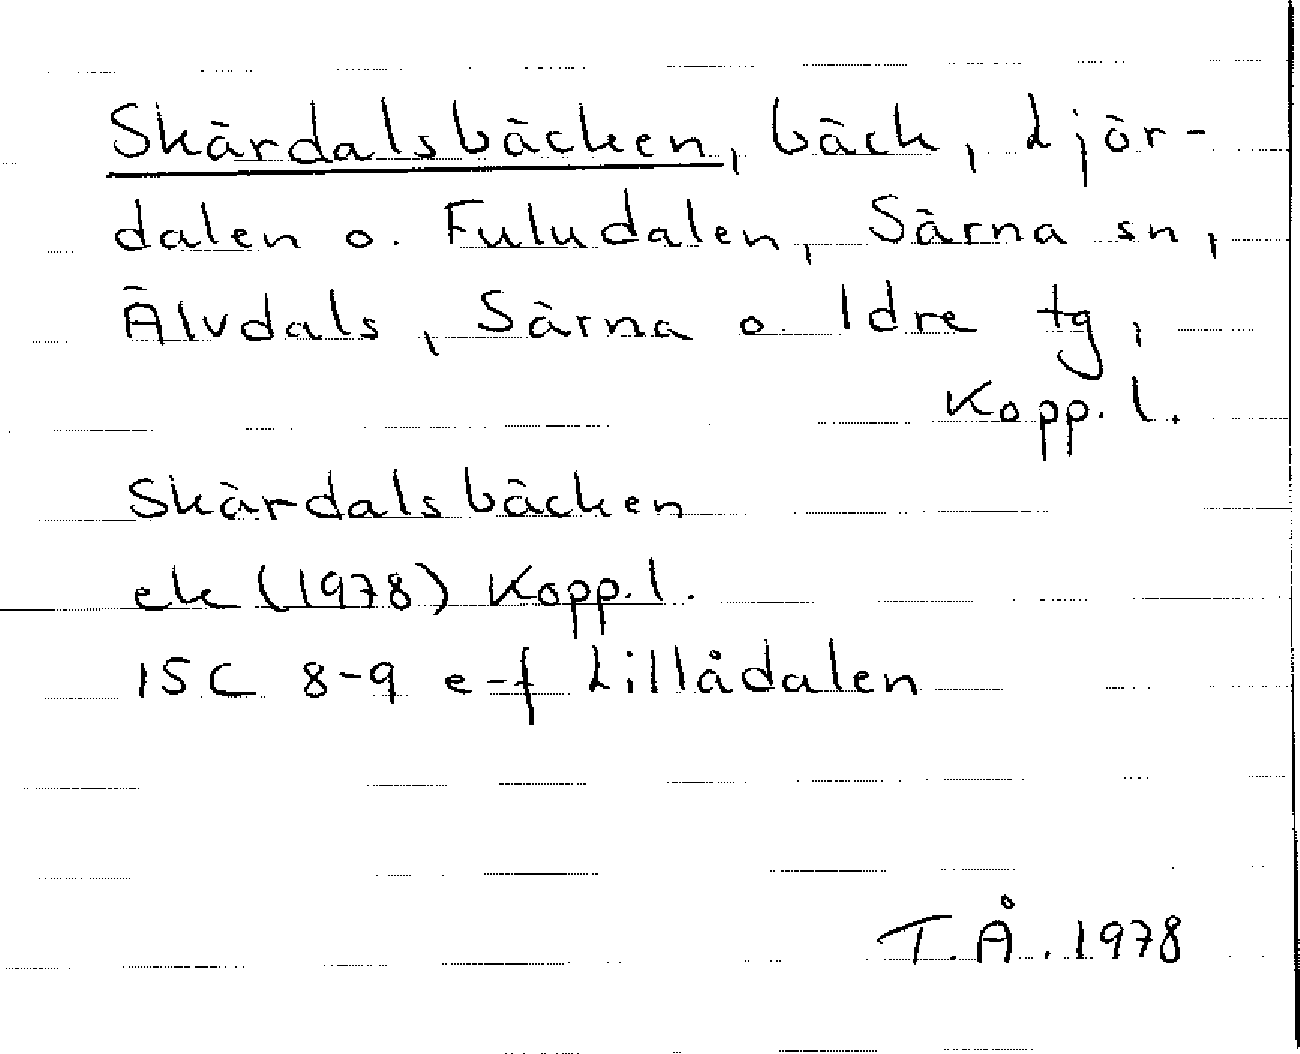 Skärdalsbäcken, bäck, Ljör-
dalen o. Fuludalen, Särna sn,
Älvdals, Särna o. Idre tg,
Kopp. l.
Skärdalsbäcken
ek (1978) Kopp. l.
15C 8-9 e-f Lillådalen
T.Å. 1978